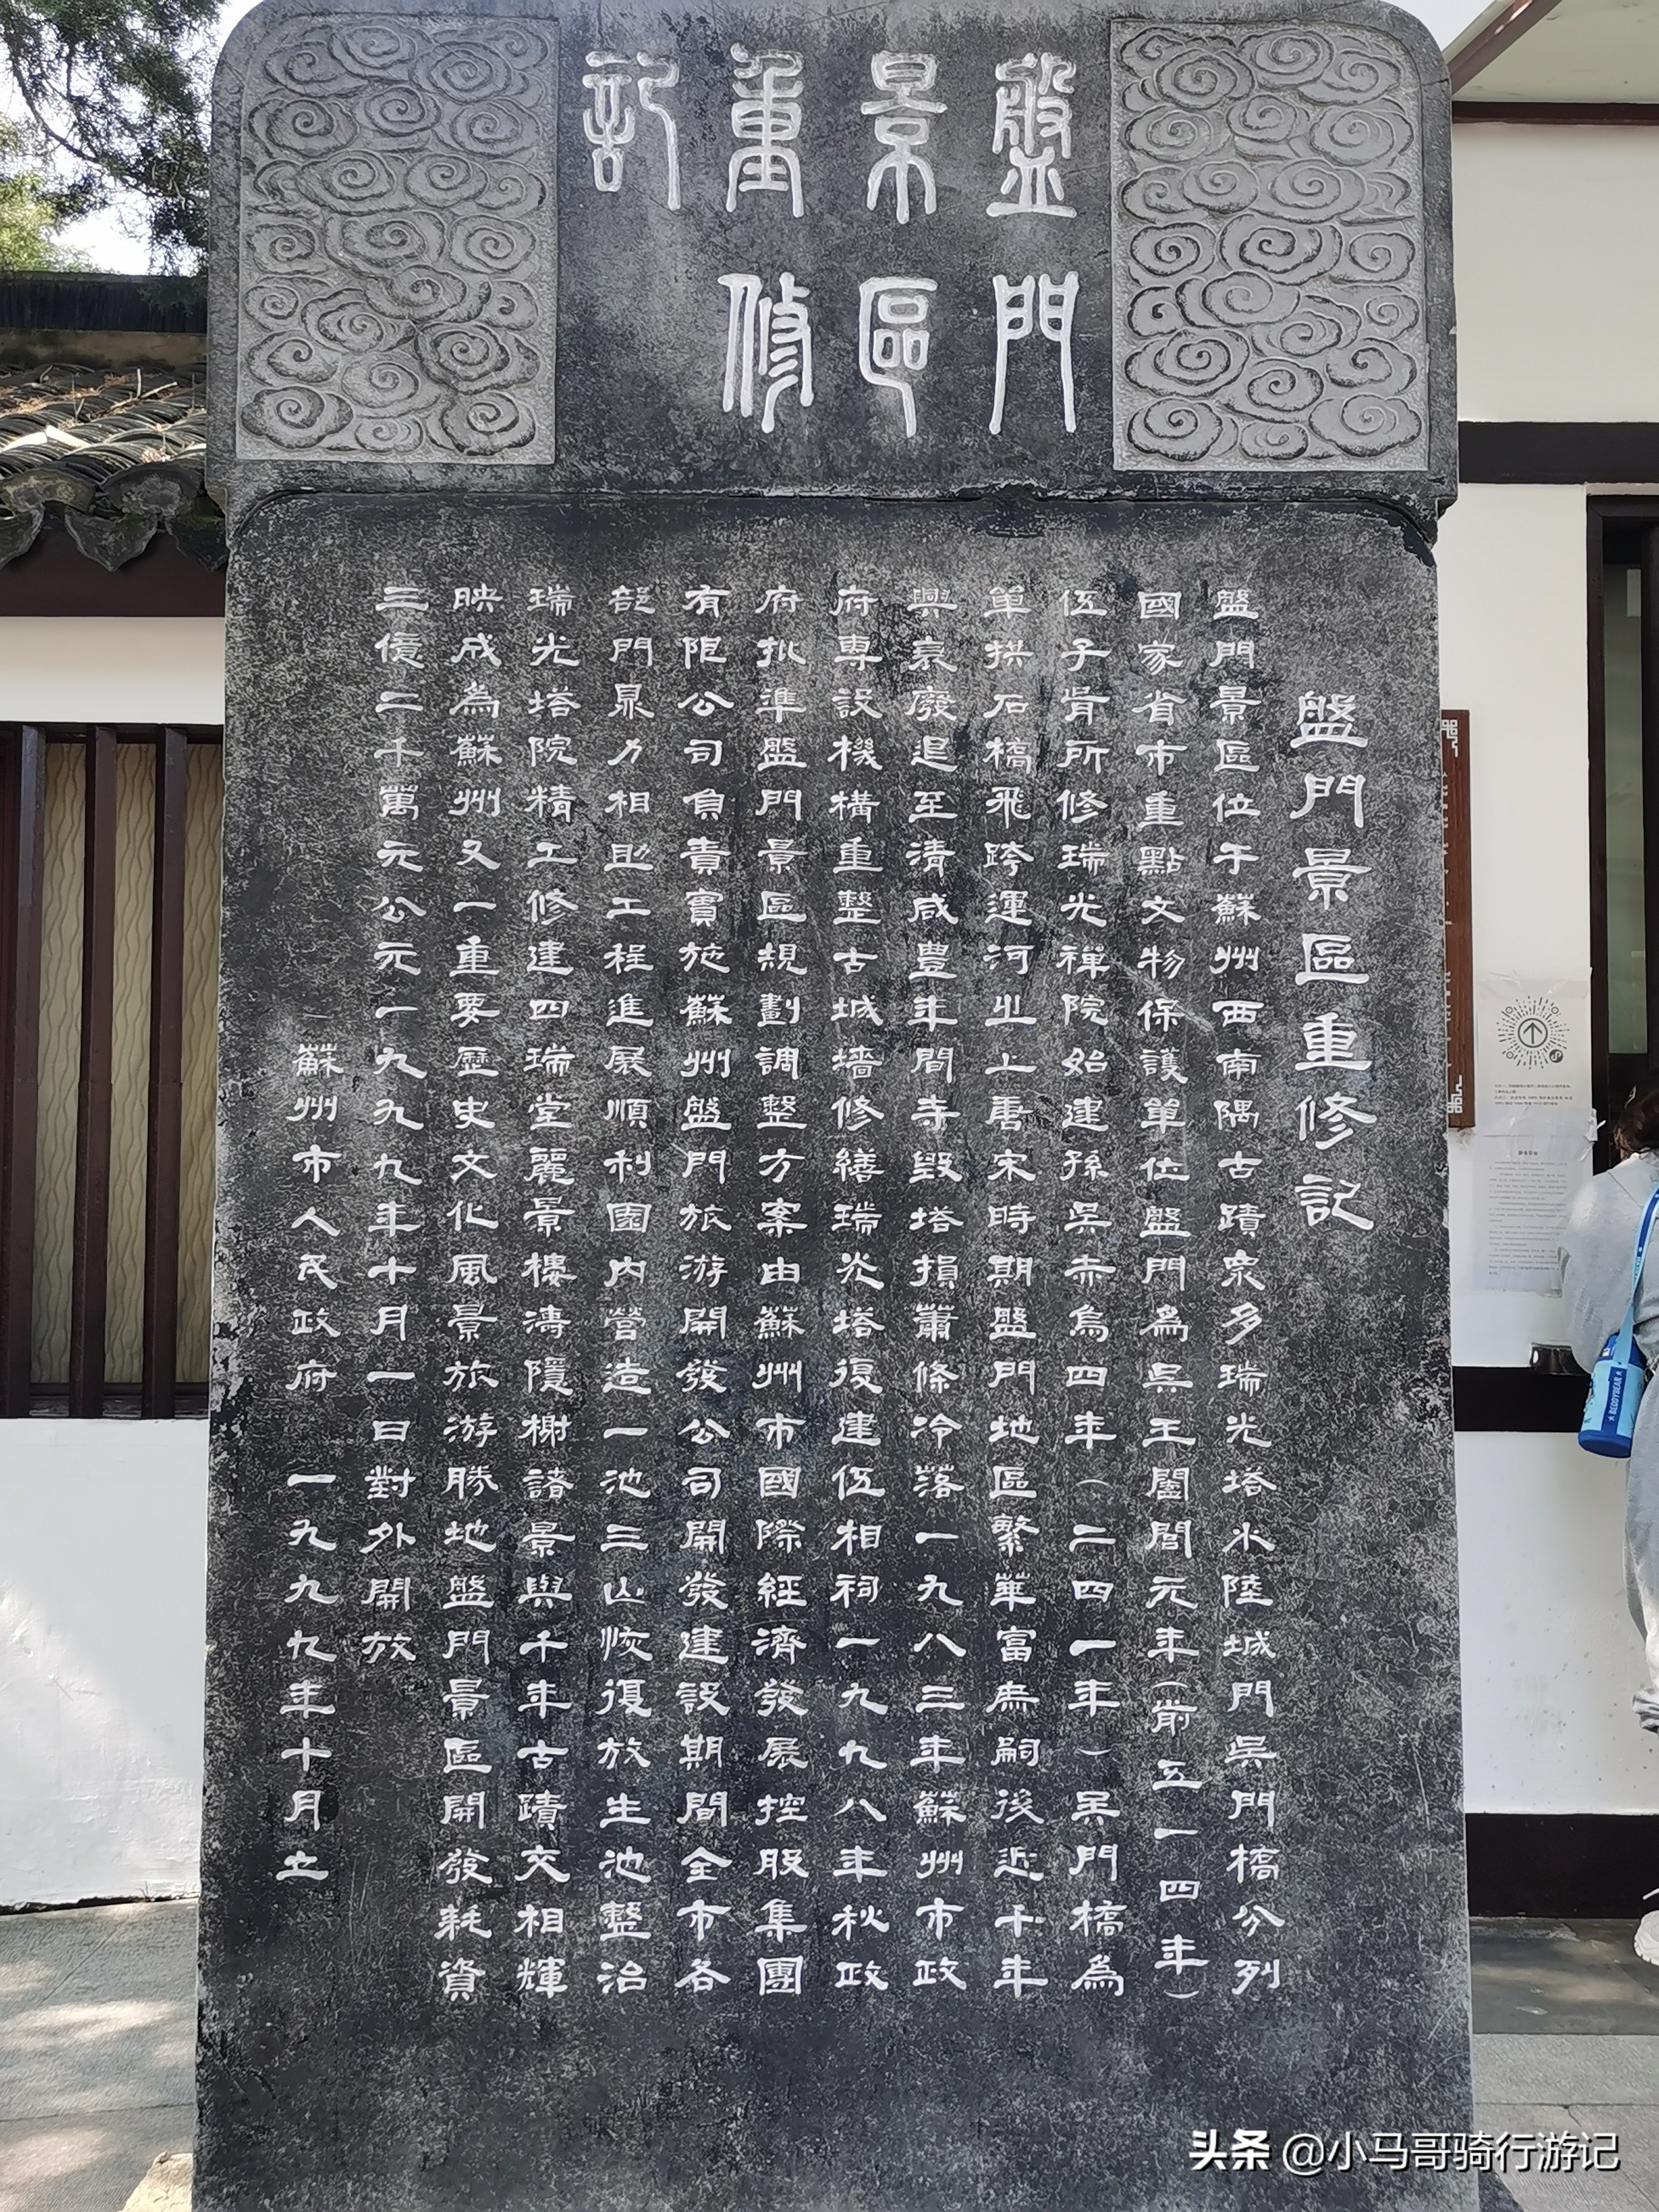 盤門
景區
重修
記
盤門景區重修記
盤門景區位于蘇州西南隅古蹟眾多瑞光塔水陸城門吳門橋分列
國家省市重點文物保護單位盤門為吳王闔閭元年(前五一四年)
伍子胥所修瑞光禪院始建孫吳赤烏四年(二四一年)吳門橋為
單拱石橋飛跨運河之上唐宋時期盤門地區繁華富庶嗣後近千年
興衰廢退至清咸豐年間寺毀塔損蕭條冷落一九八三年蘇州市政
府專設機構重整古城墻修繕瑞光塔復建伍相祠一九九八年秋政
府批準盤門景區規劃調整方案由蘇州市國際經濟發展控股集團
有限公司負責實施蘇州盤門旅游開發公司開發建設期間全市各
部門鼎力相助工程進展順利園內營造一池三山恢復放生池整治
瑞光塔院精工修建四瑞堂麗景樓濤隱榭諸景與千年古蹟交相輝
映成為蘇州又一重要歷史文化風景旅游勝地盤門景區開發耗資
三億二千萬元公元一九九九年十月一日對外開放
蘇州市人民政府 一九九九年十月立
头条 @小马哥骑行游记